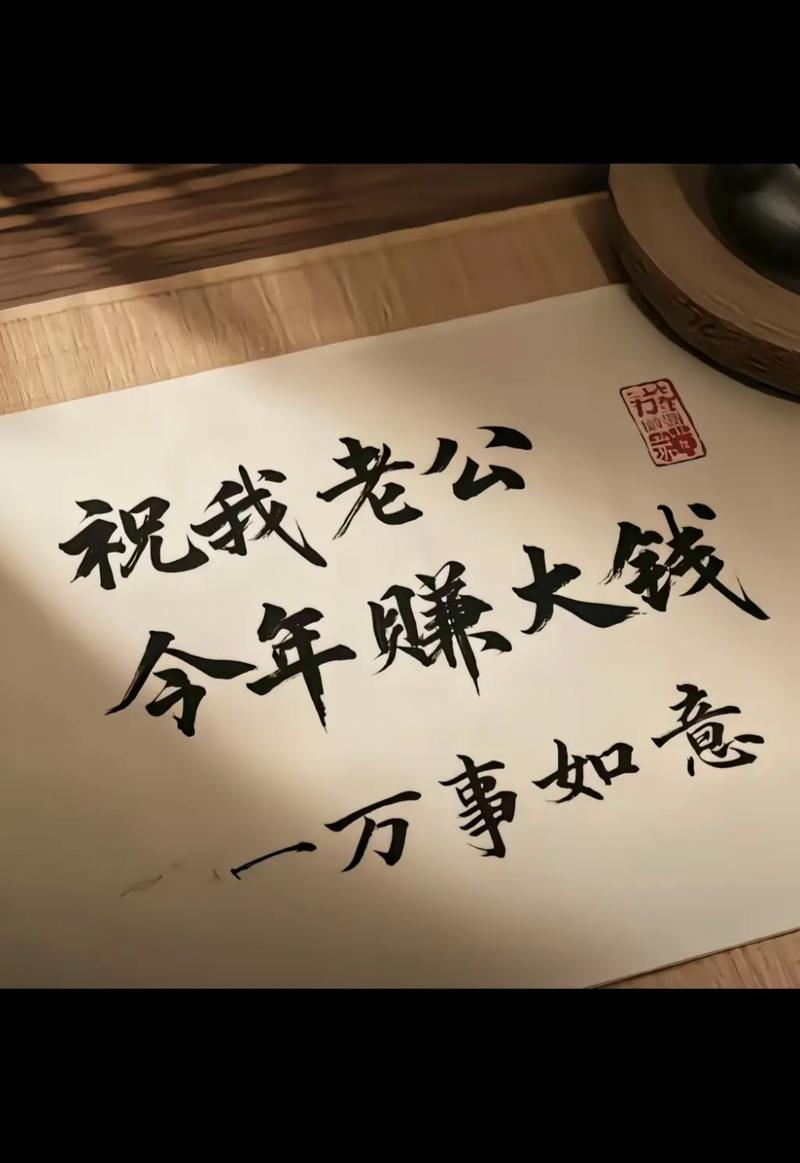 祝我老公
今年赚大钱
一万事如意